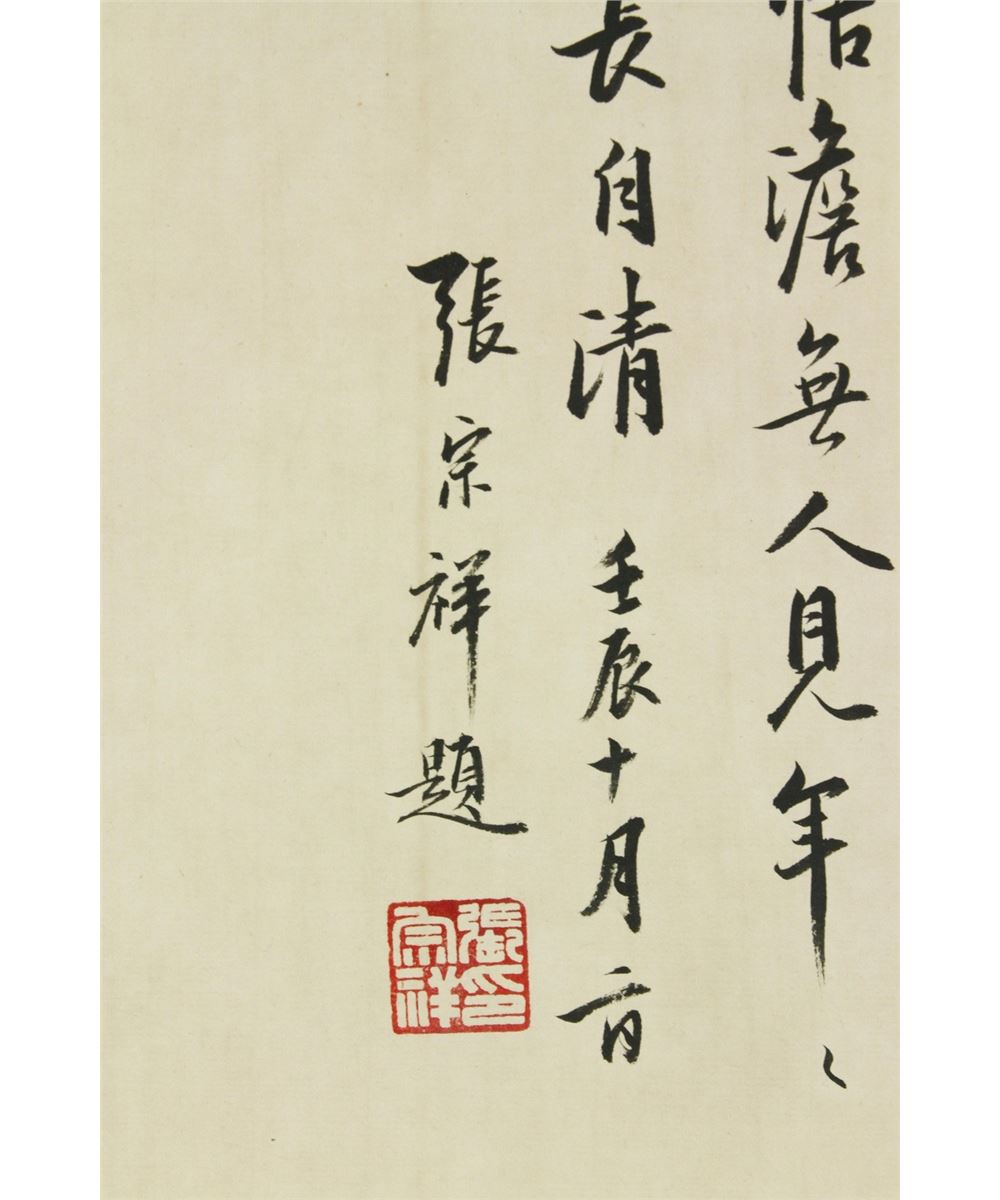 恬澹無人見年〻
長自清 壬辰十月二日
張宗祥題
張印宗祥